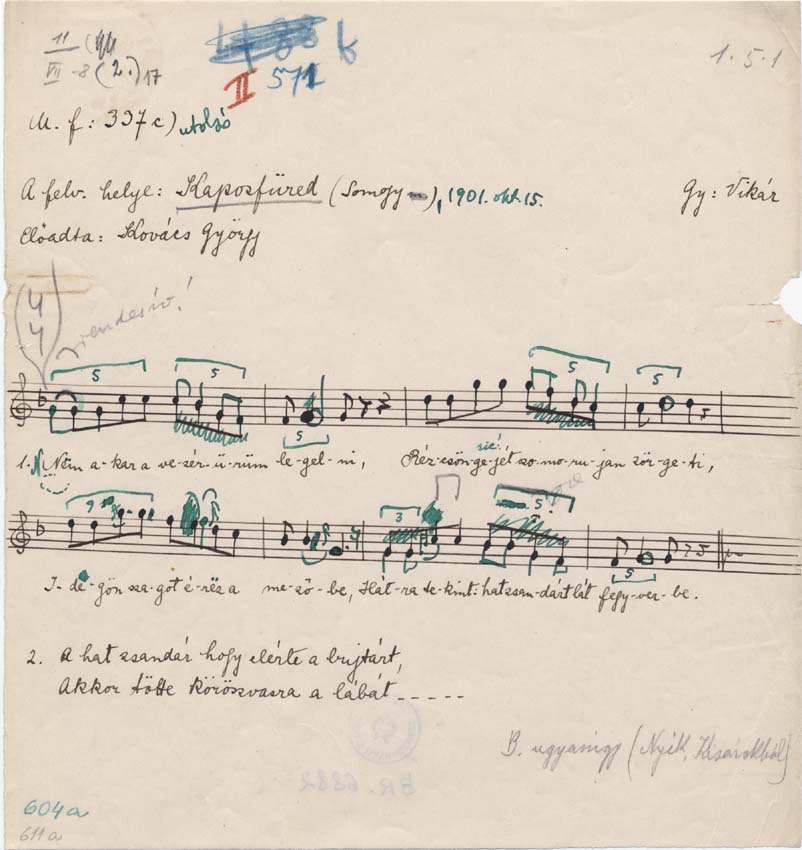 11
VII -8 (2.) 17
1488 b
II 571
1.5.1
M. f: 337c) utolsó
A felv. helye: Kaposfüred (Somogy m), 1901. okt. 15. Gy: Vikár
Előadta: Kovács György
(4 4) rendesív!
5 5 5 5
5
sic!
1. Nem a-kar a ve-zér-ü-rüm le-gel-ni, Réz-csön-ge-jét szo-mo-ru-jan zör-ge-ti,
9 3 5
5
I-de-gön sza-got é-rëz a me-zö-be, Hát-ra te-kint: hat zsan-dárt lát fegy-ver-be.
2. A hat zsandár hogy elérte a bujtárt,
Akkor tötte köröszvasra a lábát _ _ _ _ _
B. ugyanígy (Nyék,
BR. 6882
604a
611a